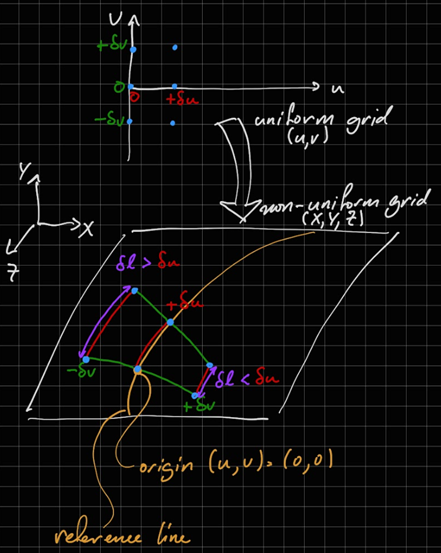 v
+δv
0
0
+δu
u
-δv
uniform grid
(u,v)
Y
X
Z
non-uniform grid
(X,Y,Z)
δl > δu
+δu
-δv
δl < δu
+δv
origin (u,v)=(0,0)
reference line